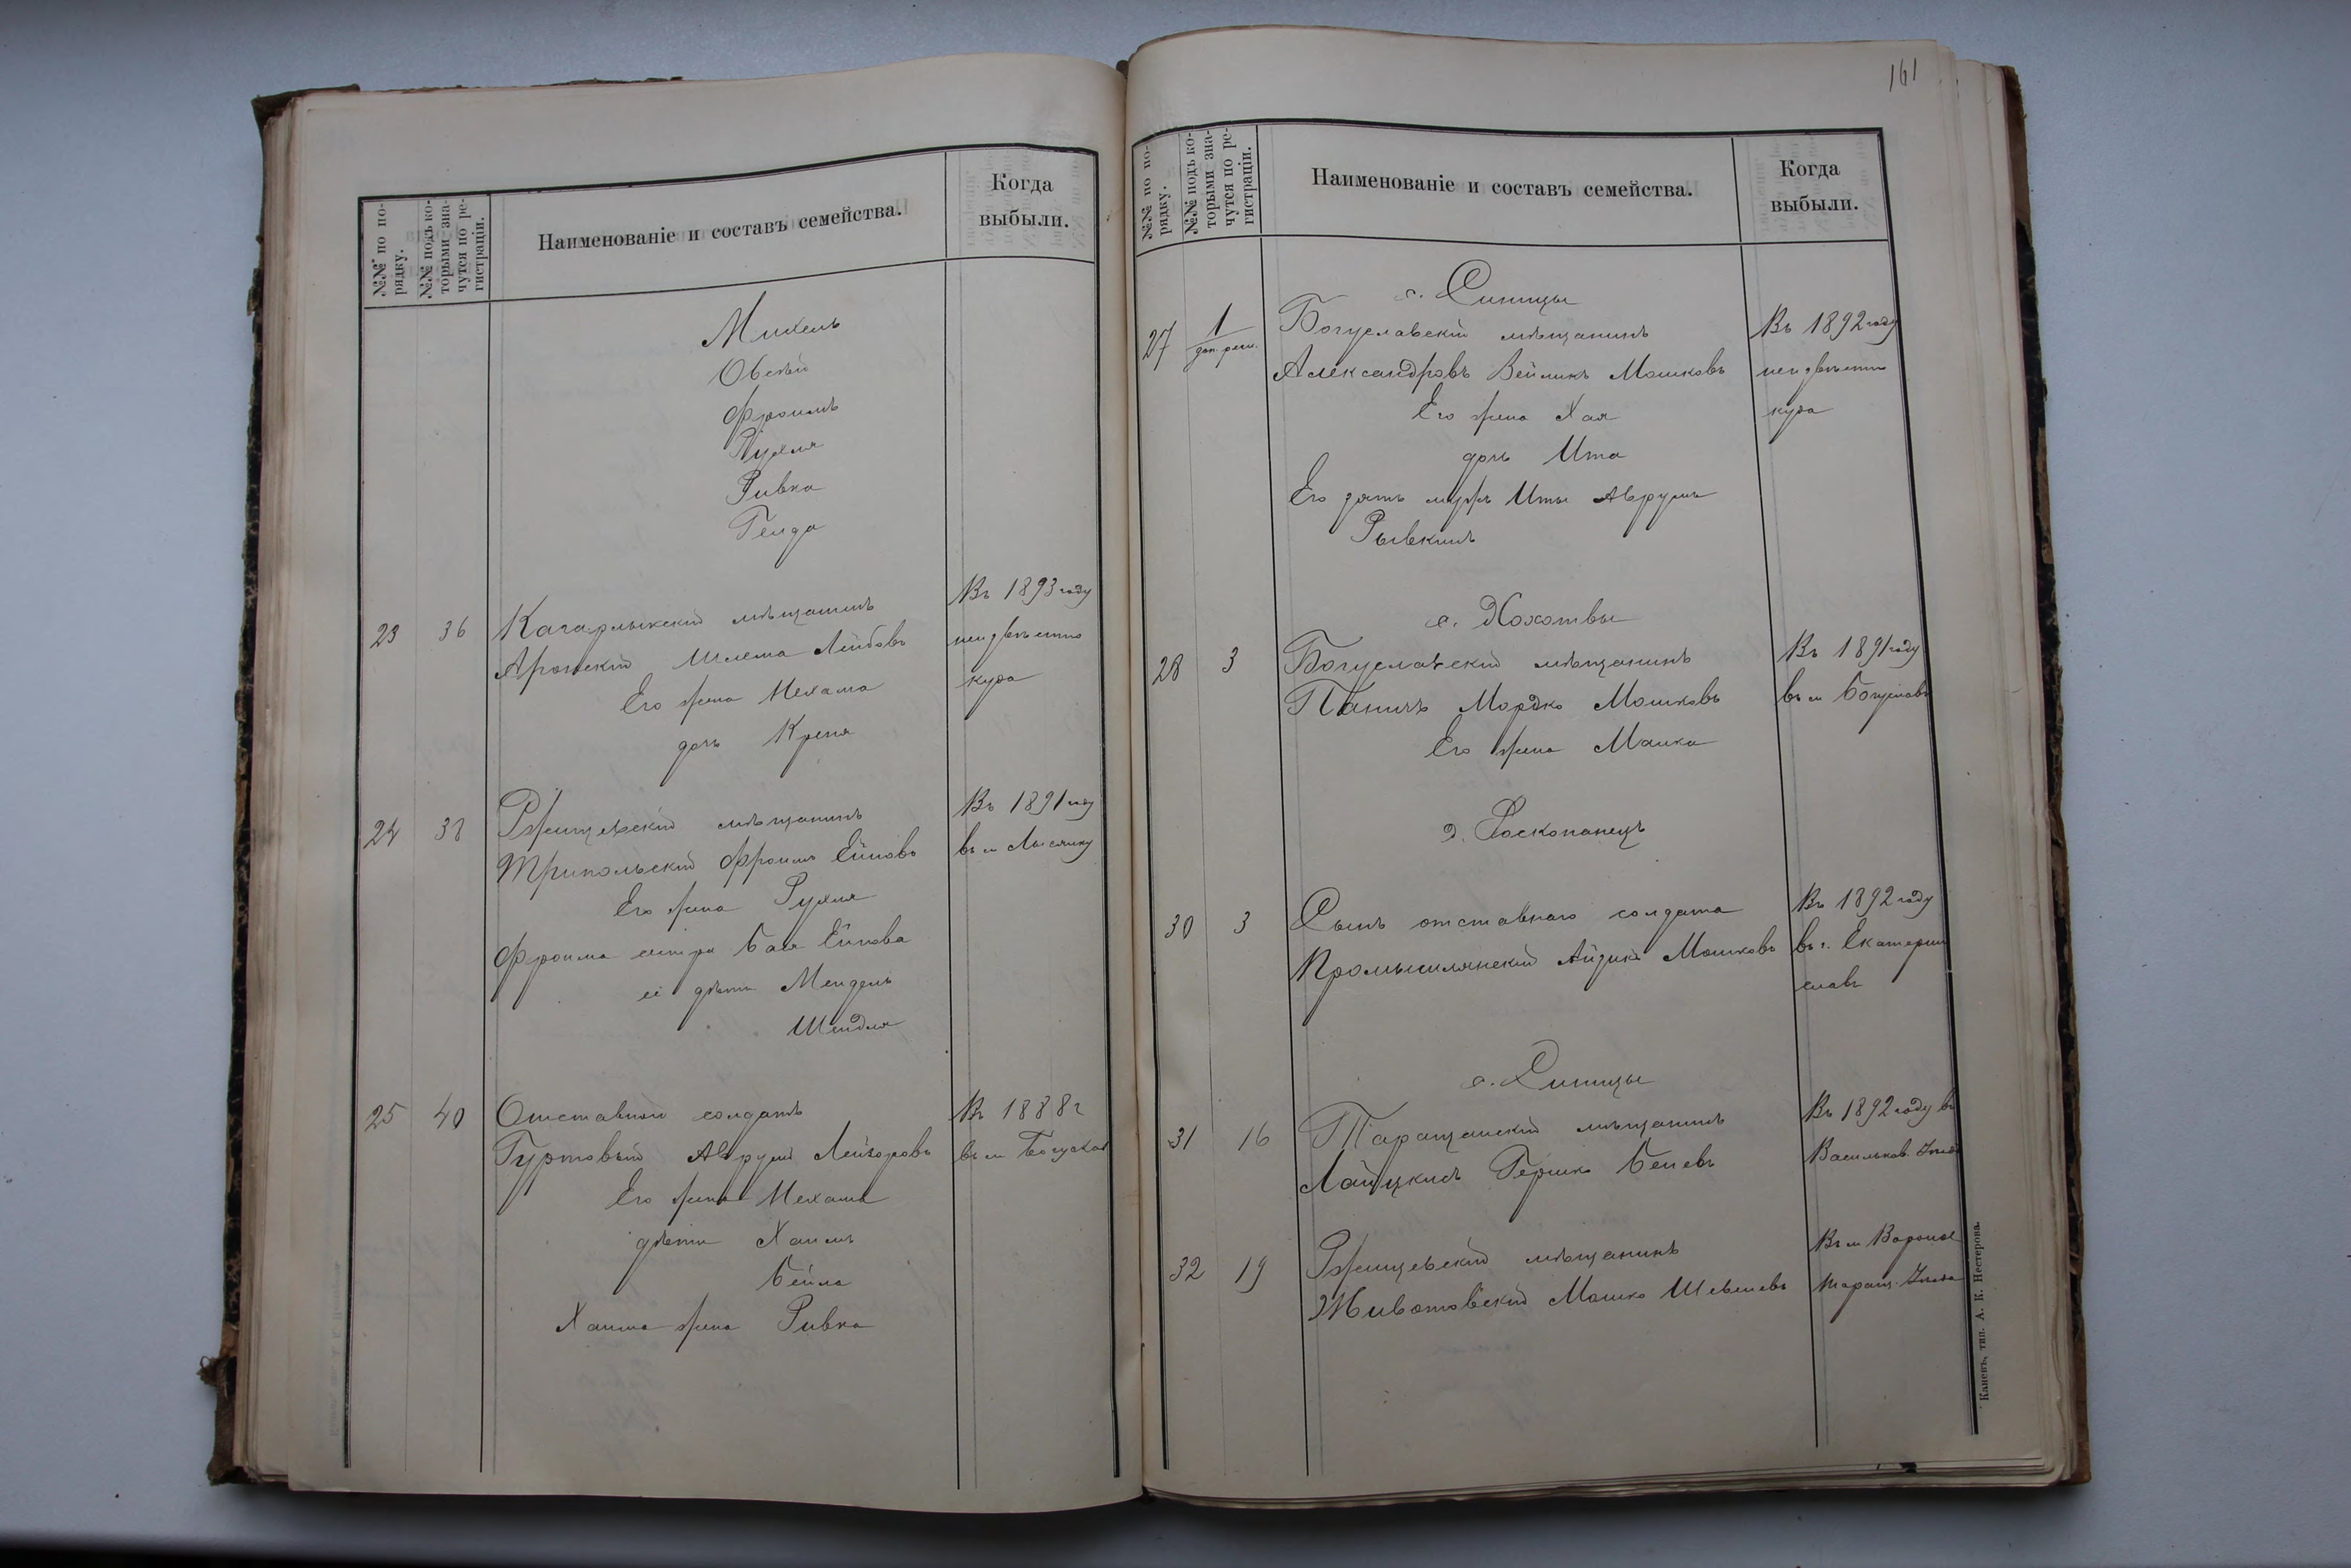 №№ по по-
рядку.
№№ подъ ко-
торыми зна-
чутся по ре-
гистраціи.
Наименованіе и составъ семейства.
Когда
выбыли.
Михель
Овсѣй
Фроимъ
Рухля
Ривка
Генда
23 36 Кагарлыкскій мѣщанинъ
Аронскій Шлема Лейбовъ
Его жена Нехама
дочь Креня
Въ 1893 году
неизвѣстно
куда
24 38 Ржищевскій мѣщанинъ
Трипольскій Фроимъ Ейновъ
Его жена Рухля
Фроима сестра Бася Ейнова
её дѣти Мендель
Шендля
Въ 1891 году
въ м Лысянку
25 40 Отставной солдатъ
Гуртовый Аврумъ Лейзоровъ
Его жена Нехама
дѣти Хаимъ
Бейла
Хаима жена Ривка
Въ 1888 г
въ м
161
№№ по по-
рядку.
№№ подъ ко-
торыми зна-
чутся по ре-
гистраціи.
Наименованіе и составъ семейства.
Когда
выбыли.
с. Синицы
27 1
Богуславскій мѣщанинъ
Александровъ Вейликъ Мошковъ
Его жена Хая
дочь Ита
Его зять мужъ Иты Аврумъ
Рывкинъ
Въ 1892 году
неизвѣстно
куда
с. Хохитвы
28 3 Богуславскій мѣщанинъ
Паничъ Мордко Мошковъ
Его жена Малка
Въ 1891 году
въ м Богуславъ
д. Раскопанецъ
30 3 Сынъ отставнаго солдата
Мошковъ
Въ 1892 году
въ г. Екатерин
славъ
с. Синицы
31 16 Таращанскій мѣщанинъ
Гершко Беневъ
Въ 1892 году въ
Васильков. Уѣздъ
32 19 Ржищевскій мѣщанинъ
Животовскій Мошко
Въ м
Таращ. Уѣзда
Каневъ, тип. А. К. Нестерова.